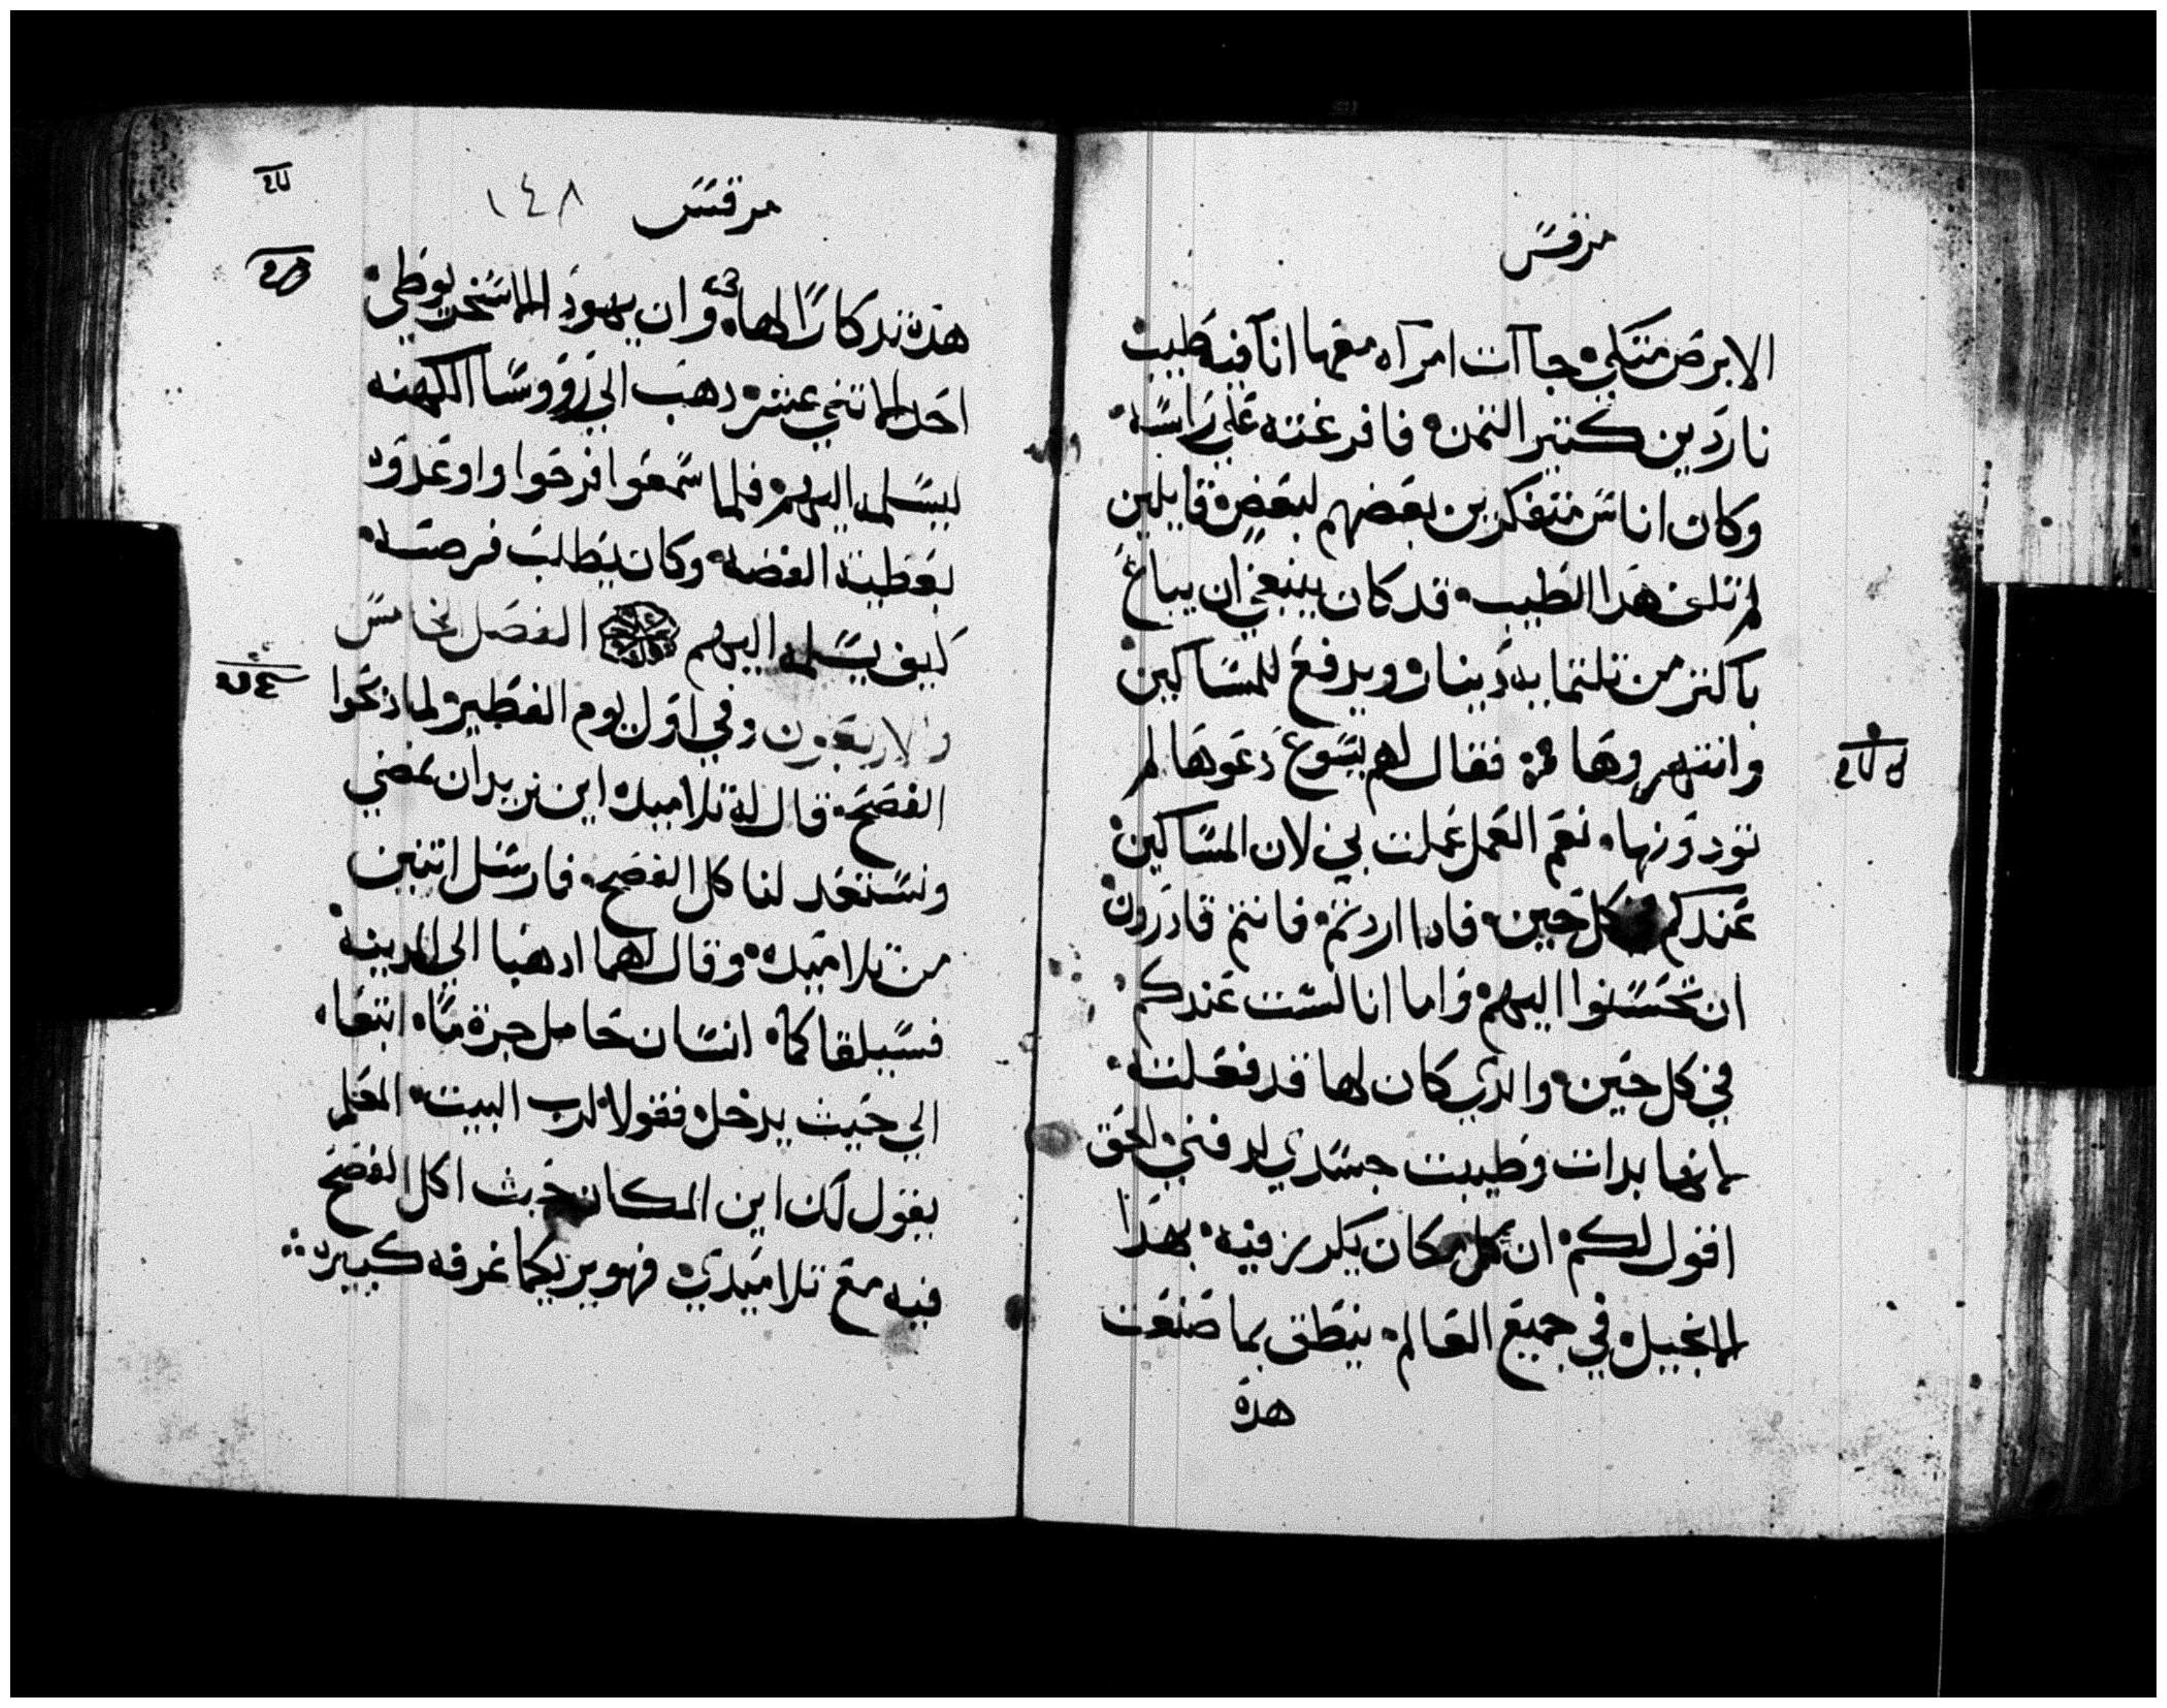 مرقس
الابرص متكي جاآت امراه معها انآ فيه طيب
ناردين كتير التمن فافرغته علي راسه
وكان اناس متفكرين بعضهم لبعض قايلين
لم تلف هدا الطيب قد كان ينبغي ان يباع
باكتر من تلتمايه دينار ويدفع للمساكين
وانتهروها فقال لهم يسوع دعوها لم
تودونها نعم العمل عملت بي لان المساكين
عندكم كل حين فادا اردتم فانتم قادرون
ان تحسنوا اليهم واما انا لست عندكم
في كل حين والدي كان لها قد فعلت
لانها بدات وطيبت جسدي لدفني الحق
اقول لكم ان كل مكان يكرز فيه بهدا
الانجيل في جميع العالم ينطق بما صنعت
هده
مرقس ١٤٨
هده تدكارا لها وان يهودا الاسخريوطي
احد الاتني عشر دهب الي رووسا الكهنه
ليسلمه اليهم فلما سمعوا فرحوا واوعدوه
بعطية الفضه وكان يطلب فرصه
كيف يسلمه اليهم الفصل الخامس
والاربعون وفي اول يوم الفطير لما دبحوا
الفصح قال له تلاميده اين تريد ان نمضي
ونستعد لنا كل الفصح فارسل اتنين
من تلاميده وقال لهما ادهبا الي المدينه
فسيلقاكما انسان حامل جرة مآ اتبعاه
الي حيث يدخل فقولا لرب البيت المعلم
يقول لك اين المكان حيث اكل الفصح
فيه مع تلاميدي فهو يريكما غرفه كبيره